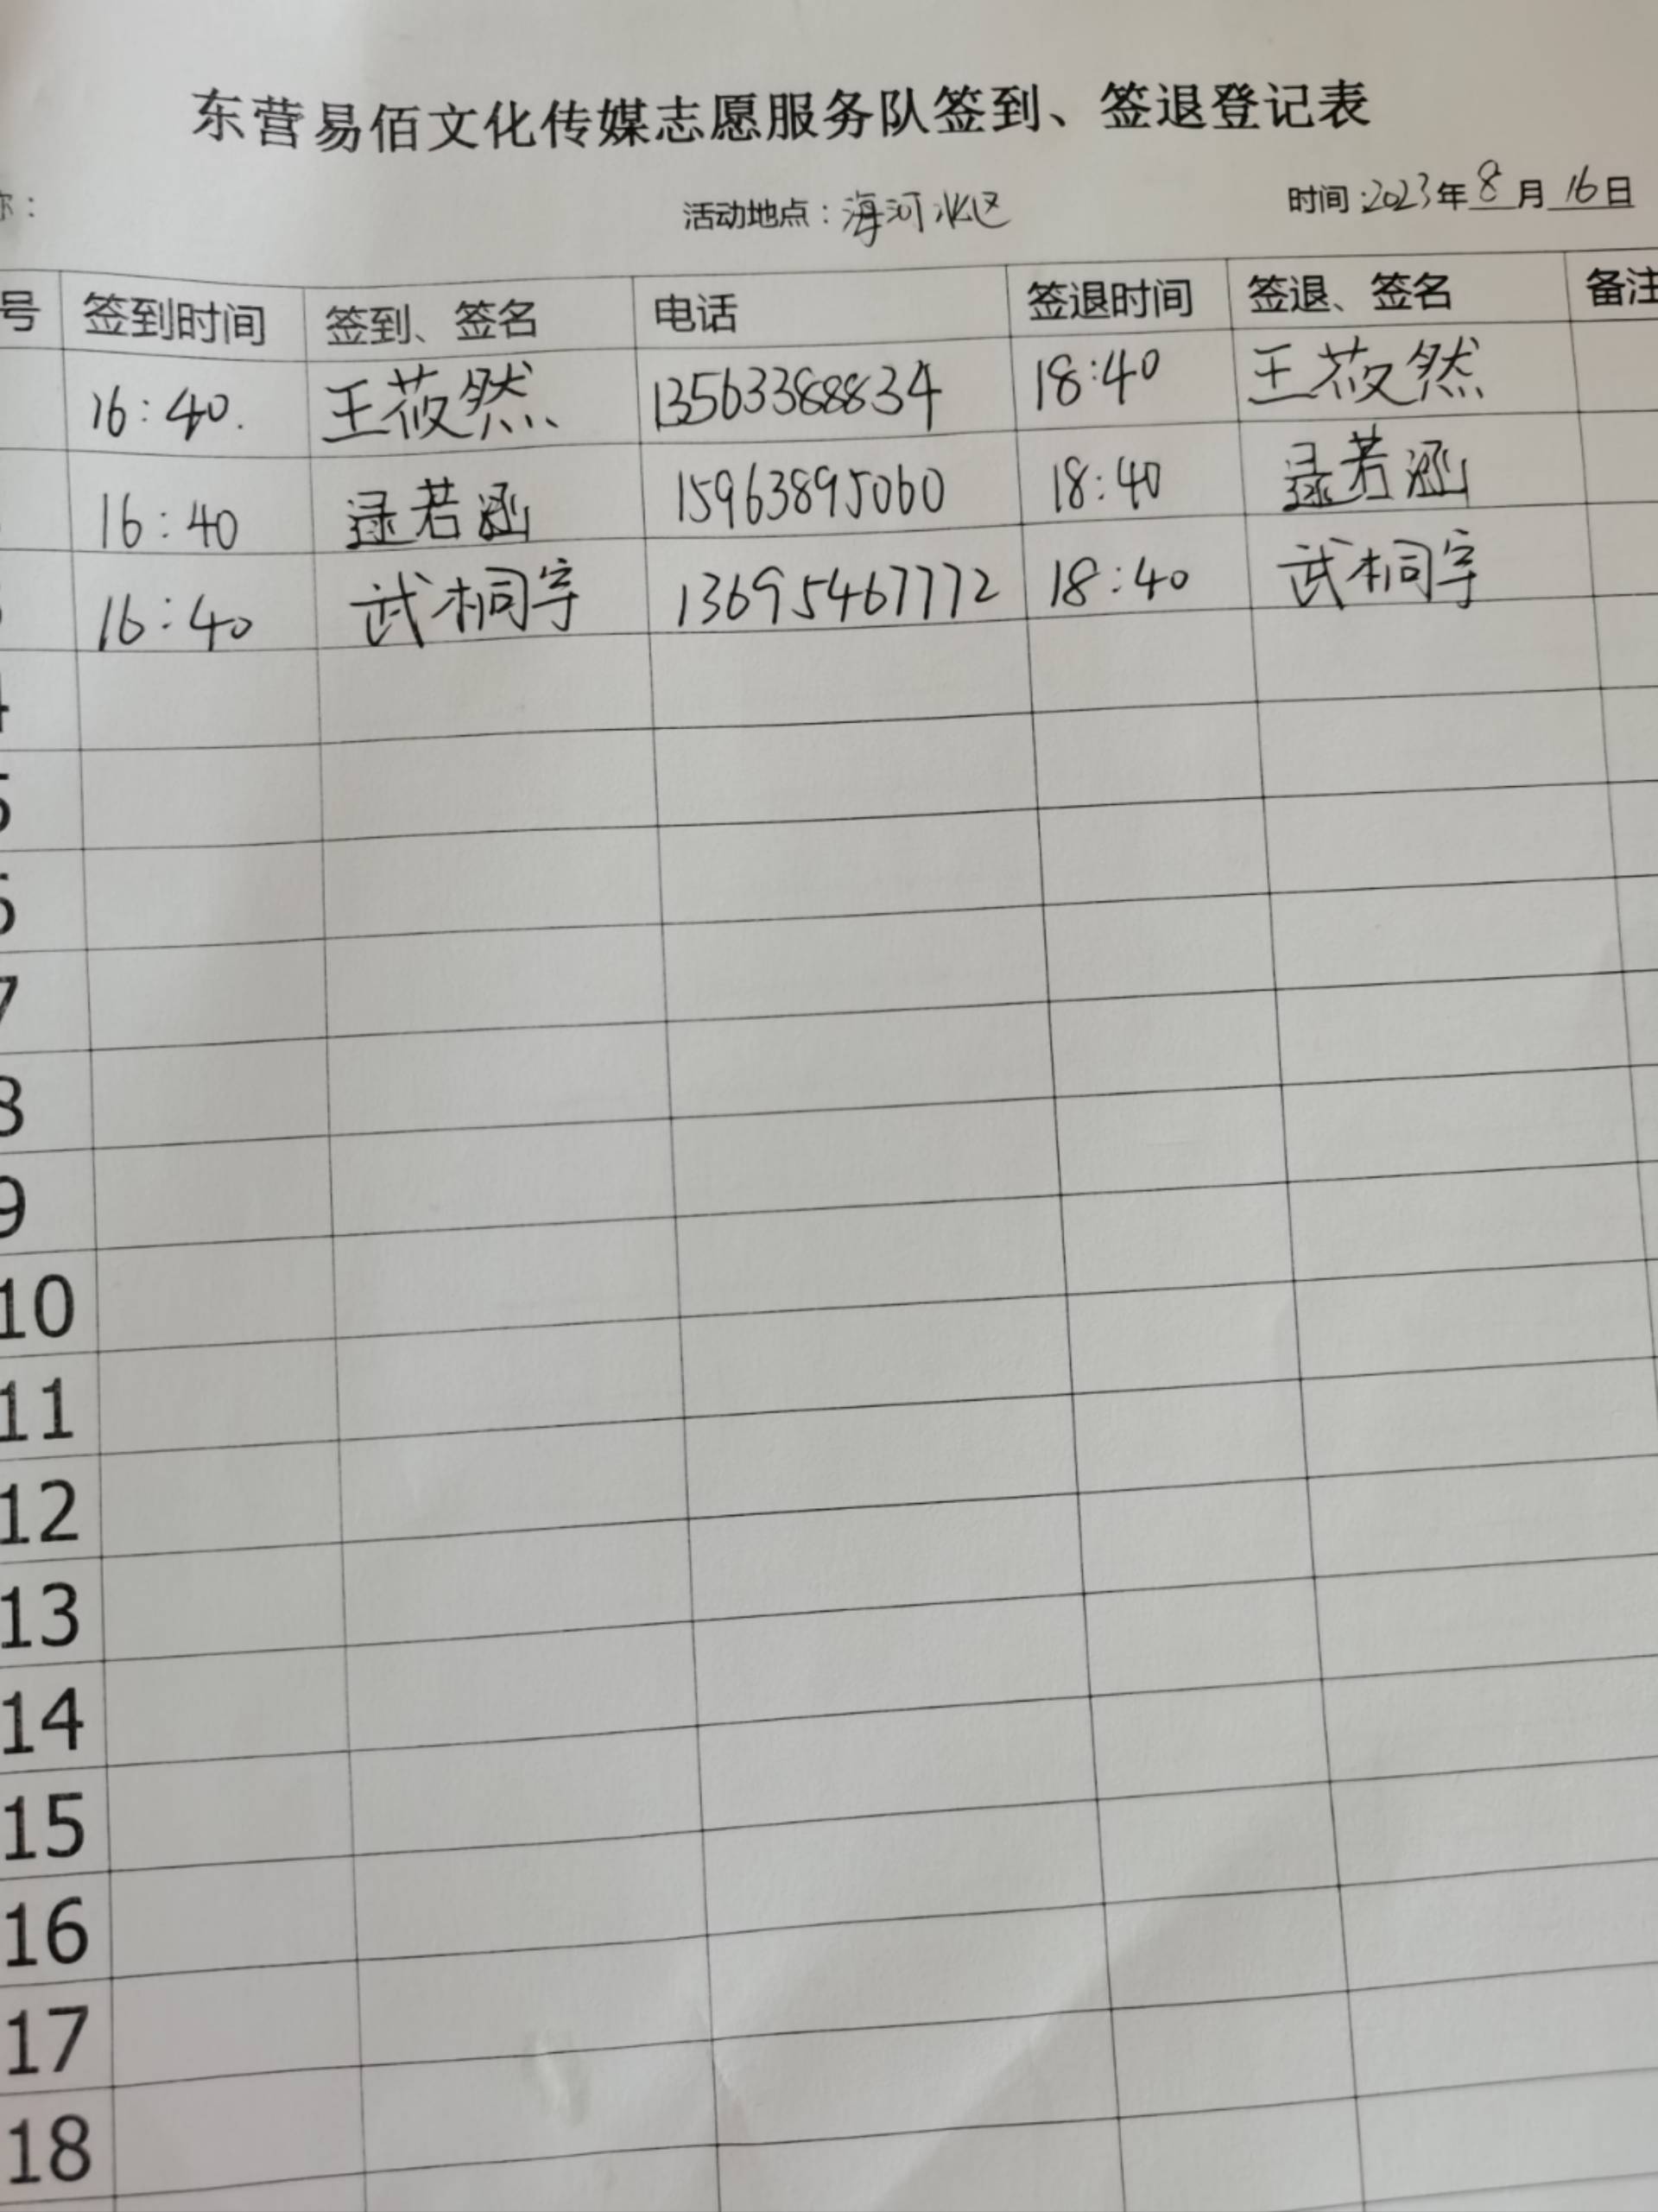 东营易佰文化传媒志愿服务队签到、签退登记表
称： 活动地点：海河水区 时间：2023年8月16日
号 签到时间 签到、签名 电话 签退时间 签退、签名 备注
16:40. 王莜然 13563388834 18:40 王莜然
16:40 逯若涵 15963895060 18:40 逯若涵
16:40 武桐宇 13695467772 18:40 武桐宇
4
5
6
7
8
9
10
11
12
13
14
15
16
17
18